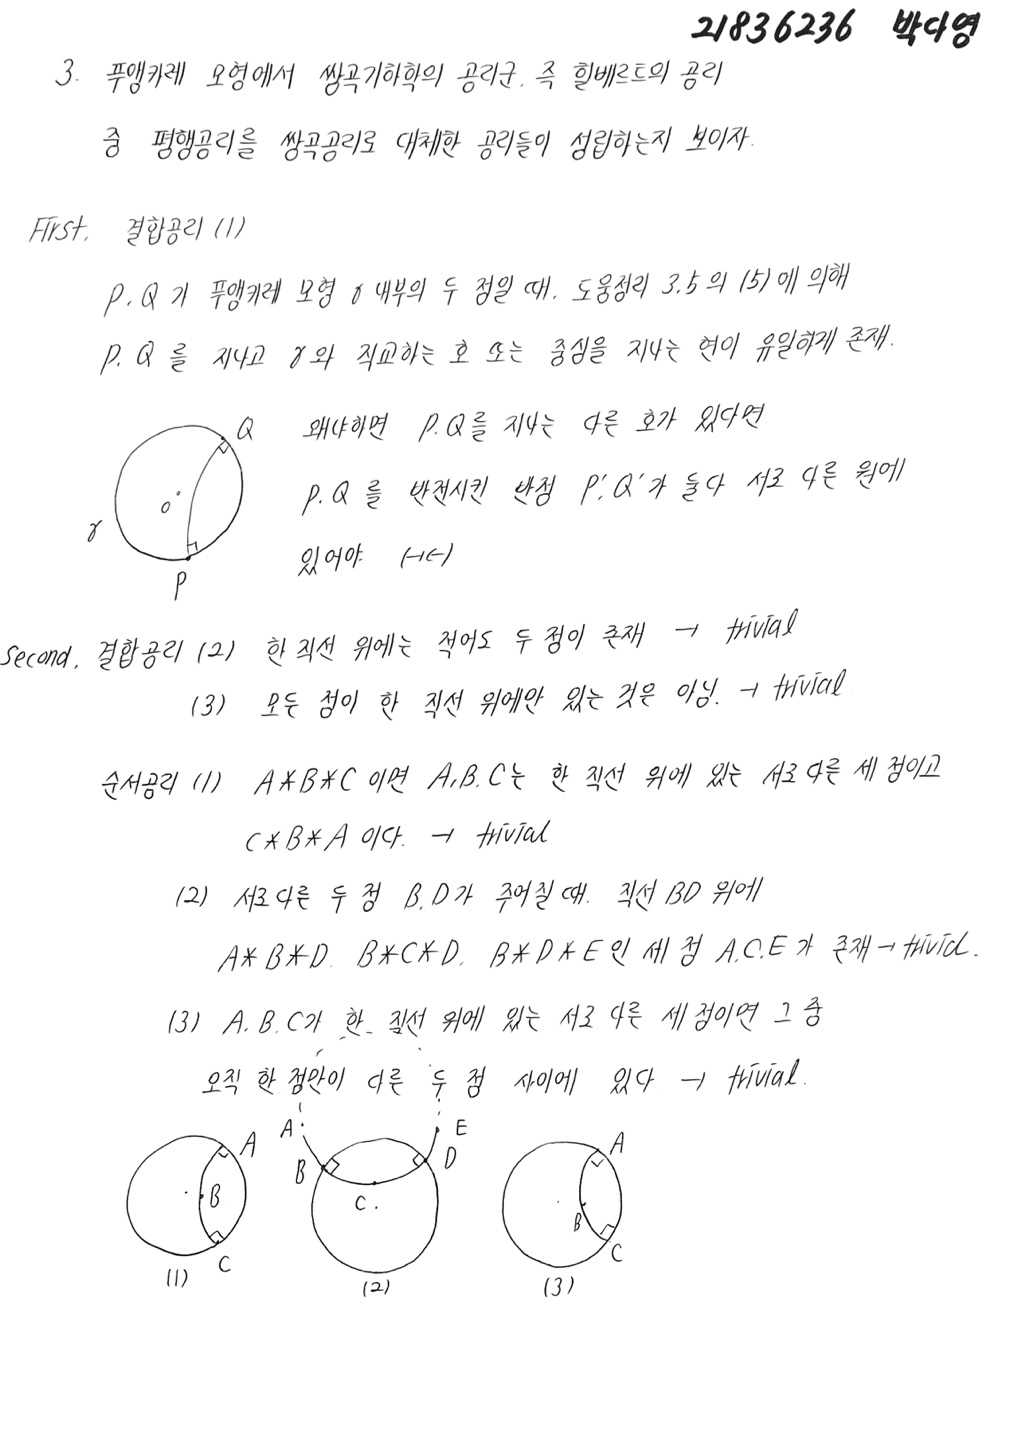 21836236 박다영
3. 푸앵카레 모형에서 쌍곡기하학의 공리군. 즉 힐베르트의 공리
중 평행공리를 쌍곡공리로 대체한 공리들이 성립하는지 보이자.
First. 결합공리 (1)
P.Q가 푸앵카레 모형 γ 내부의 두 점일 때. 도움정리 3.5의 (5)에 의해
P.Q를 지나고 γ와 직교하는 호 또는 중심을 지나는 현이 유일하게 존재.
왜냐하면 P.Q를 지나는 다른 호가 있다면
P.Q를 반전시킨 반점 P'.Q'가 둘다 서로 다른 원에
있어야 (→←)
Q
O
γ
P
Second. 결합공리 (2) 한 직선 위에는 적어도 두 점이 존재 → trivial
(3) 모든 점이 한 직선 위에만 있는 것은 아님. → trivial
순서공리 (1) A*B*C 이면 A.B.C는 한 직선 위에 있는 서로 다른 세 점이고
C*B*A 이다. → trivial
(2) 서로 다른 두 점 B.D가 주어질 때. 직선 BD 위에
A*B*D. B*C*D. B*D*E인 세 점 A.C.E가 존재→trivial.
(3) A.B.C가 한 직선 위에 있는 서로 다른 세 점이면 그 중
오직 한 점만이 다른 두 점 사이에 있다 → trivial.
A
B
C
(1)
A
B
C
D
E
(2)
A
B
C
(3)